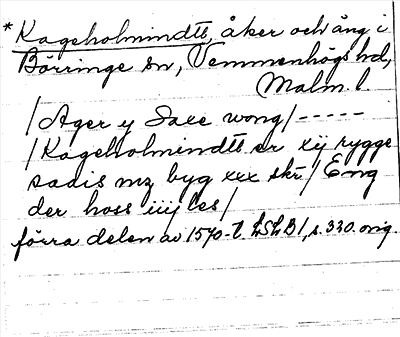 * Kageholmindtt, åker och äng i
Börringe sn, Vemmenhögs hd,
Malm. l.
/Ager y Saxe wong/-----
/Kageholmindtt er xij rygge
sadis mz byg xxx skr/ Eng
der hoss iiij les/
förra delen av 1570-t. LSLB1, s. 330. orig.